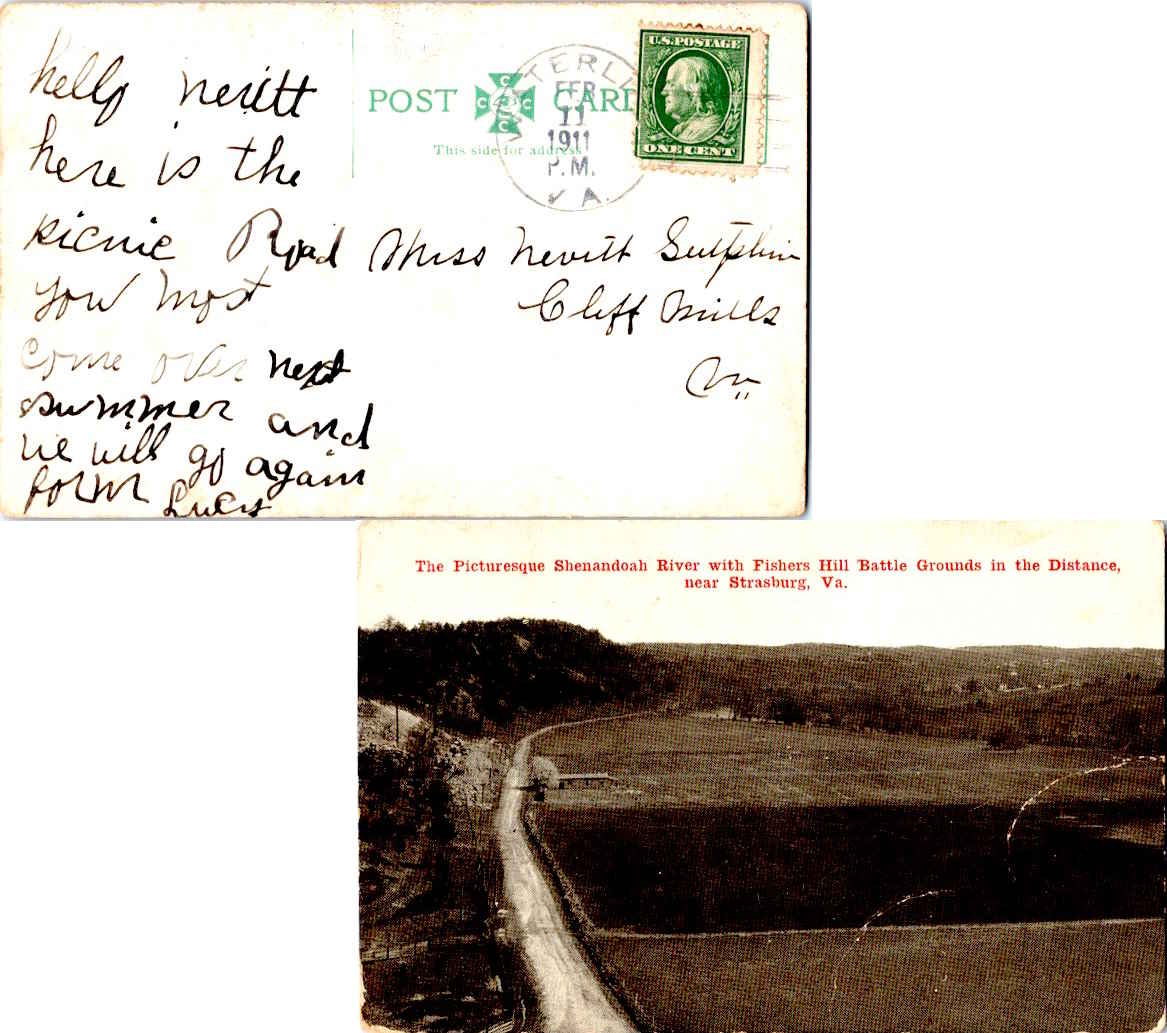 hello nevitt
here is the
picnic Road
you most
come over next
summer and
we will go again
from Lucy
POST CARD
This side for address
FEB
11
1911
P.M.
VA.
U.S. POSTAGE
ONE CENT
Miss Nevitt Sutphin
Cliff Mills
Va
The Picturesque Shenandoah River with Fishers Hill Battle Grounds in the Distance,
near Strasburg, Va.